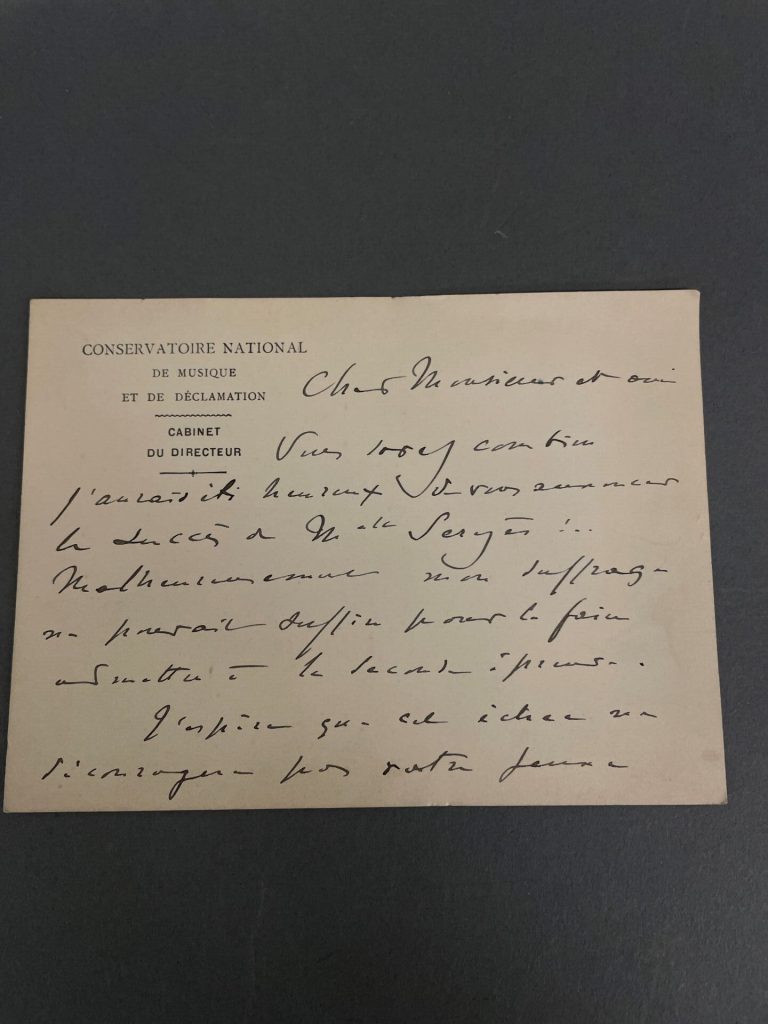 CONSERVATOIRE NATIONAL
DE MUSIQUE
ET DE DÉCLAMATION
CABINET
DU DIRECTEUR
Cher Monsieur et ami
Vous savez combien
j'aurais été heureux de vous annoncer
le succès de Melle !..
Malheureusement mon suffrage
ne pouvait suffire pour la faire
admettre à la seconde épreuve.
J'espère que cet échec ne
découragera pas votre jeune